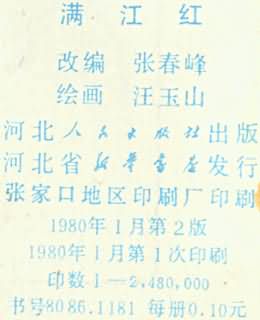 满江红
改编 张春峰
绘画 汪玉山
河北人民出版社出版
河北省新华书店发行
张家口地区印刷厂印刷
1980年1月第2版
1980年1月第1次印刷
印数1—2,480,000
书号8086.1181 每册0.10元